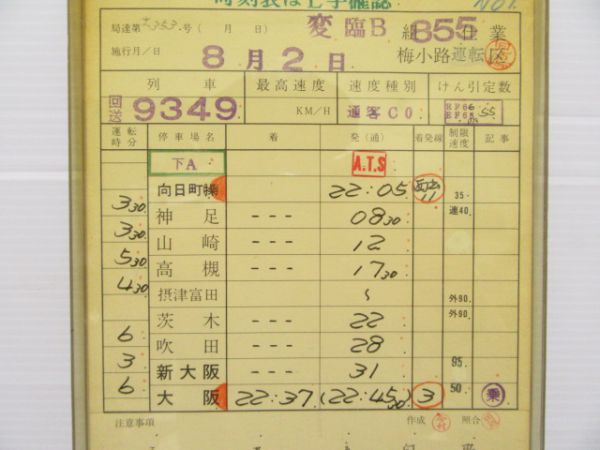 時刻表は七字確認 No1.
局達第 353 号( 月 日) 変臨B 組 855 仕業
施行月/日 8月2日 梅小路運転区
列車 最高速度 速度種別 けん引定数
回送 9349 KM/H 通客C0
運転時分 停車場名 着 発(通) 着発線 制限速度 記事
下A A.T.S
向日町操 22:05 11 35
3 30 神足 --- 08 30 連40
3 30 山崎 --- 12
5 30 高槻 --- 17 30
4 30 摂津富田 外90
茨木 --- 22 外90
6 吹田 --- 28
3 新大阪 --- 31 95
6 大阪 22:37 (22:45 30) 3 50 乗
注意事項 作成 照合